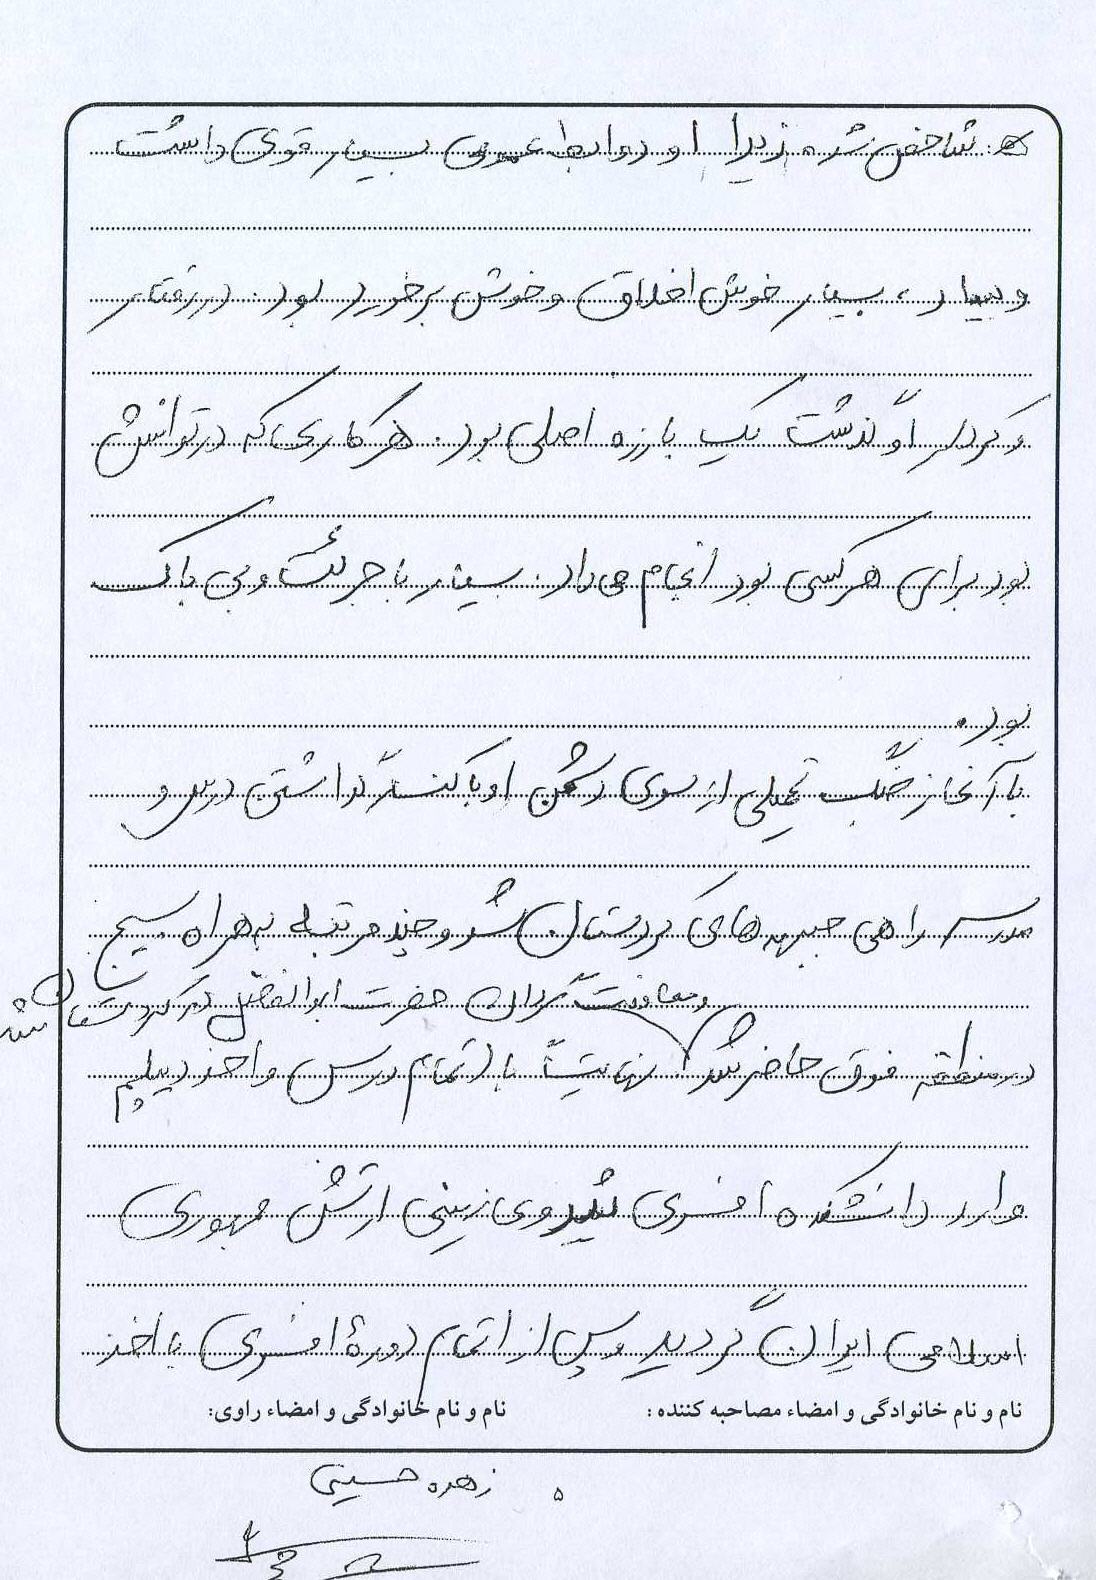 شاخص شده زیرا او روابط عمومی بسیار قوی داشت
و بسیار، بسیار خوش اخلاق و خوش برخورد بود. در رفتار
و کردار او گذشت یک بارزه اصلی بود. هر کاری که در توانش
بود برای هر کسی بود انجام می داد. بسیار با جرئت و بی باک
بود.
با آغاز جنگ تحمیلی از سوی دشمن او با کنار گذاشتن درس و
مدرسه راهی جبهه های کردستان شد و چند مرتبه به همراه بسیج
و معاونت گردان حضرت ابوالفضل در کردستان شد
در منطقه فوق حاضر شد. نهایتاً با اتمام درس و اخذ دیپلم
وارد دانشکده افسری نیروی زمینی ارتش جمهوری
اسلامی ایران گردید و پس از اتمام دورهٔ افسری با اخذ
نام و نام خانوادگی و امضاء مصاحبه کننده : نام و نام خانوادگی و امضاء راوی:
زهره حسینی
۵